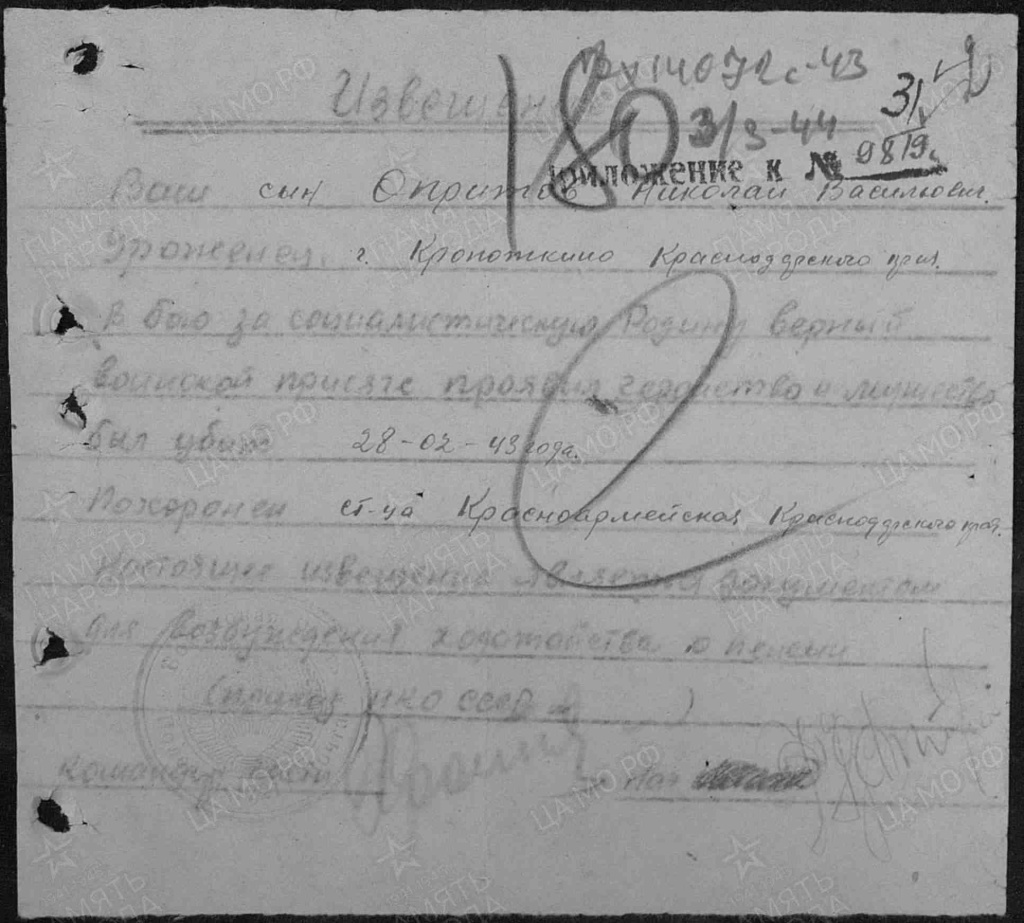 вх 14072с-43
Извещение
180
3/3-44
31/V
приложение к № 9819с
Ваш сын Опритов Николай Васильевич.
Уроженец г. Кропоткино Краснодарского края.
В бою за социалистическую Родину верный
воинской присяге проявив геройство и мужество
был убит 28-02-43 года.
Похоронен ст-ца Красноармейская Краснодарского края.
Настоящее извещение является документом
для возбуждения ходатайства о пенсии
(приказ НКО СССР № )
Командир части